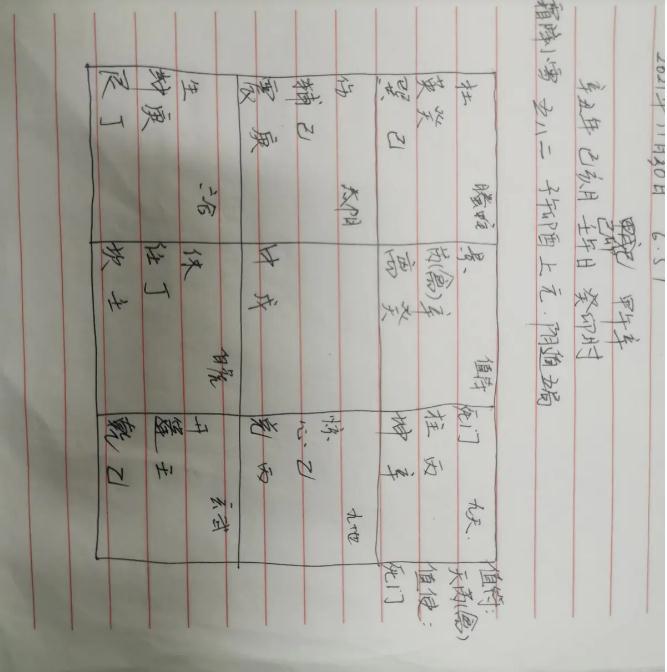 2021年11月30日 6:51
甲午辛
辛丑年 己亥月 壬午日 癸卯时
霜降小雪 五八二 子午卯酉上元 阴遁五局
杜 螣蛇
英 癸
巽 己
景 值符
芮(禽)辛
离 癸
死门 九天
柱 丙
坤 辛
值符:
天芮(禽)
值使:
死门
伤 太阴
辅 己
震 庚
中 戊
惊 九地
心 乙
兑 丙
生 六合
庚
艮 丁
休 白虎
任 丁
坎 壬
开 玄武
蓬 壬
乾 乙